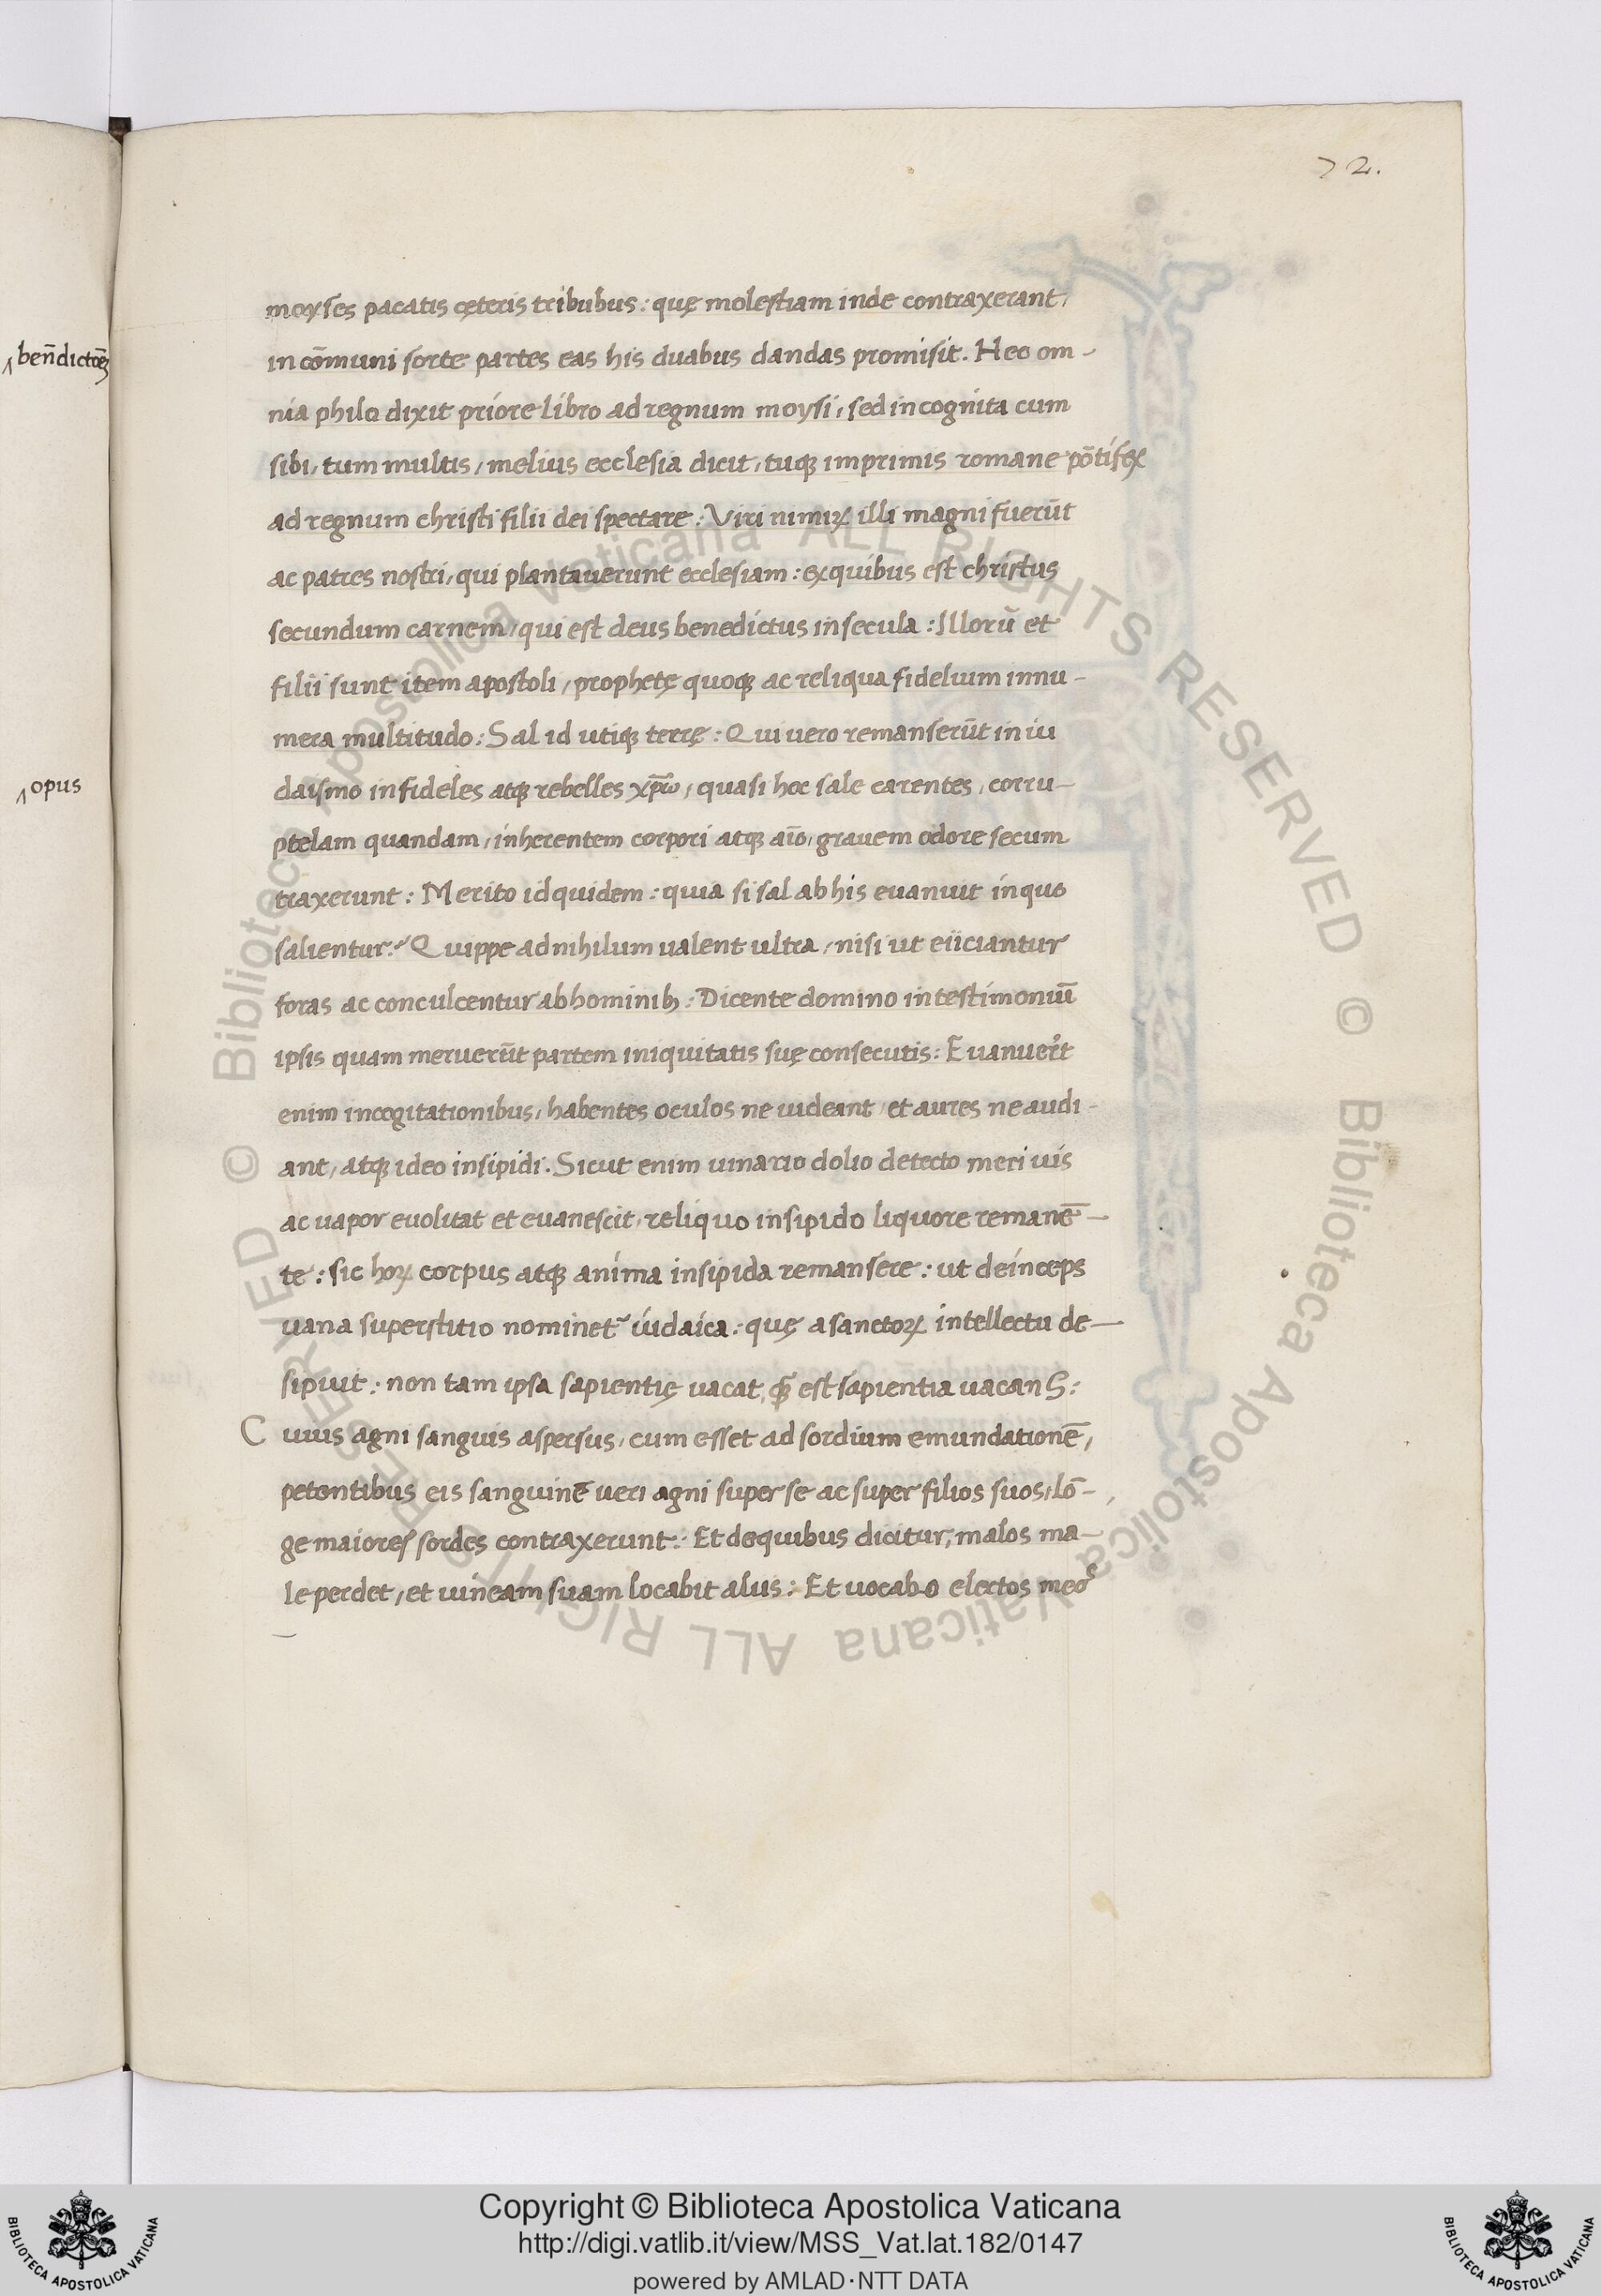 72.
benn̄dictoēȝ
opus
moyses pacatis cęteris tribubus: quę molestiam inde contraxerant,
in cōmuni sorte partes eas his duabus dandas promisit. Hec om-
nia philo dixit priore libro ad regnum moysi, sed incognita cum
sibi, tum multis, melius ecclesia dicit, tuqȝ imprimis romane pōtifex
ad regnum christi filii dei spectare: Viri nimiꝝ illi magni fuerūt
ac patres nostri, qui plantauerunt ecclesiam: ex quibus est christus
secundum carnem, qui est deus benedictus in secula: Illorū et
filii sunt item apostoli, prophetę quoqȝ ac reliqua fidelium innu-
mera multitudo: Sal id utiqȝ terrę: Qui uero remanserūt in iu
daismo infideles atqȝ rebelles xp̄o, quasi hoc sale carentes, corru-
ptelam quandam, inherentem corpori atqȝ aīo, grauem odore secum
traxerunt: Merito id quidem: quia si sal ab his euanuit in quo
salientur? Quippe ad nihilum ualent ultra, nisi ut eiiciantur
foras ac conculcentur ab hominibȝ: Dicente domino in testimoniū
ipsis quam meruerūt partem iniquitatis suę consecutis: Euanuer̄t
enim in cogitationibus, habentes oculos ne uideant, et aures ne audi-
ant, atqȝ ideo insipidi. Sicut enim uinario dolio detecto meri uis
ac uapor euolitat et euanescit, reliquo insipido liquore remanē-
te: sic hoꝝ corpus atqȝ anima insipida remansere: ut deinceps
uana superstitio nominet᷑ iudaica: quę a sanctoꝝ intellectu de-
sipuit: non tam ipsa sapientię uacat, qȝ est sapientia uacans:
Cuius agni sanguis aspersus, cum esset ad sordium emundationē,
petentibus eis sanguinē ueri agni super se ac super filios suos, lō-
ge maiores sordes contraxerunt: Et de quibus dicitur, malos ma-
le perdet, et uineam suam locabit aliis: Et uocabo electos meos
© Biblioteca Apostolica Vaticana ALL RIGHTS RESERVED © Biblioteca Apostolica Vaticana ALL RIGHTS RESERVED
Copyright © Biblioteca Apostolica Vaticana
http://digi.vatlib.it/view/MSS_Vat.lat.182/0147
powered by AMLAD·NTT DATA
BIBLIOTECA APOSTOLICA VATICANA
BIBLIOTECA APOSTOLICA VATICANA